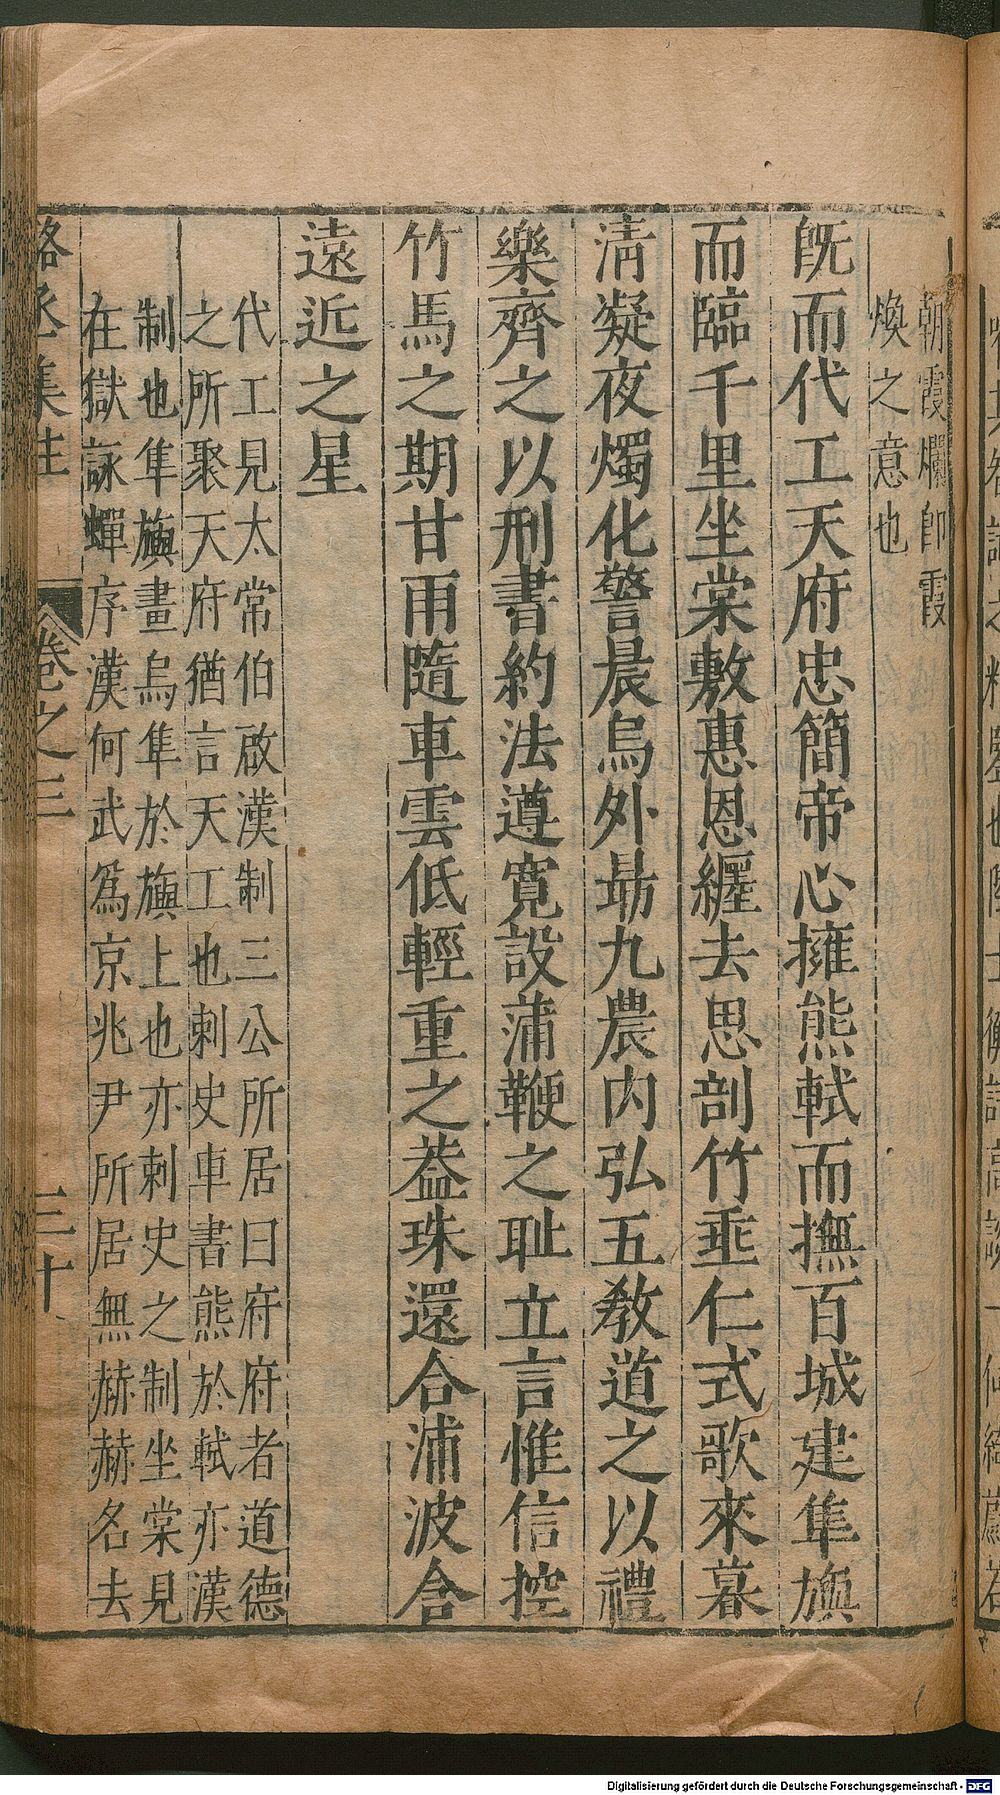 朝霞欄卽霞
煥之意也
旣而代工天府忠簡帝心擁熊軾而撫百城建隼旟
而臨千里坐棠敷惠恩纏去思剖竹垂仁式歌來暮
清凝夜燭化警晨烏外勗九農內弘五敎道之以禮
樂齊之以刑書約法遵寬設蒲鞭之耻立言惟信控
竹馬之期甘雨隨車雲低輕重之葢珠還合浦波含
遠近之星
代工見太常伯啟漢制三公所居曰府府者道德
之所聚天府猶言天工也刺史車書熊於軾亦漢
制也隼旟畫烏隼於旟上也亦刺史之制坐棠見
在獄詠蟬序漢何武爲京兆尹所居無赫赫名去
駱丞集註
卷之三
三十
Digitalisierung gefördert durch die Deutsche Forschungsgemeinschaft - DFG